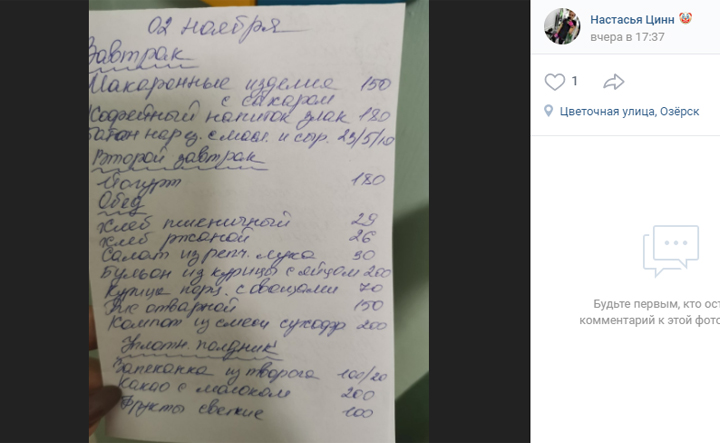 02 ноября
Завтрак
Макаронные изделия 150
с сахаром
Кофейный напиток злак 180
Батон нарез. с масл. и сыр. 23/5/10
Второй завтрак
Йогурт 180
Обед
Хлеб пшеничный 29
Хлеб ржаной 26
Салат из реп. лука 30
Бульон из курицы с яйцом 200
Курица порц. с овощами 70
Рис отварной 150
Компот из смеси сухофр 200
Уплотн. полдник
Запеканка из творога 100/20
Какао с молоком 200
Фрукты свежие 100
Настасья Цинн
вчера в 17:37
1
Цветочная улица, Озёрск
Будьте первым, кто ост
комментарий к этой фото